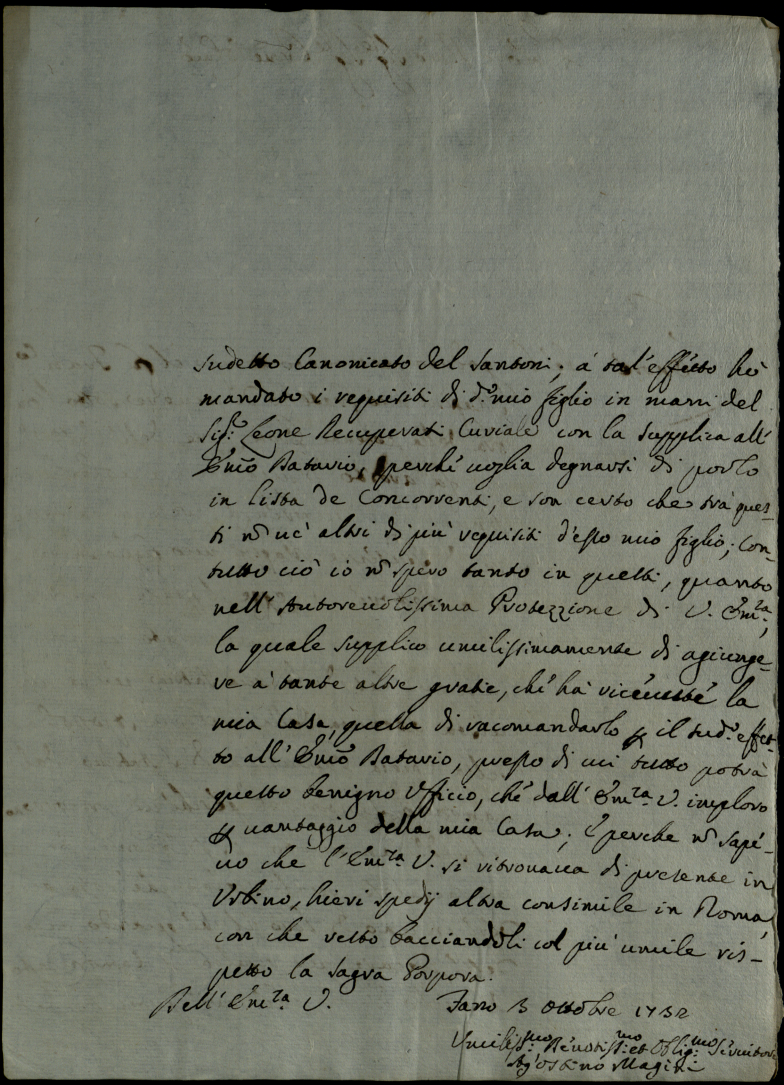 sudetto Canonicato del Santoni; á tal'effetto hò
mandato i requisiti di d.º mio figlio in mani del
Sig.r Leone Recuperati Curiale con la supplica all'
Em̃o Datario, perché uoglia degnarsi di porlo
in lista de Concorrenti, e son certo che trà ques-
ti nõ ue' altri di più requisiti d'esso mio figlio; Con-
tutto ciò io nõ spero tanto in questi, quanto
nell'Autoreuolissima Protezzione di V. Em.za,
la quale supplico umilissimamente di agiunge-
re à tante altre gratie, ché hà riceuuté la
mia Casa, quella di racomandarlo ꝑ il sud.º effet-
to all'Em̃o Datario, presso di cui tutto potrà
questo benigno Ufficio, ché dall'Em.za V. imploro
ꝑ uantaggio della mia Casa; E perche nõ sapé-
uo che l'Em.za V. si ritrouaua di presente in
Urbino, hieri spedij altra consimile in Roma,
con che resto bacciandoli col più umile ris-
petto la sagra Porpora.
Dell'Em.za V. Fano 3 Ottobre 1732
Umiliss.mo Déuotiss.mo et Oblig.mo Séruitore
Agostino Magini